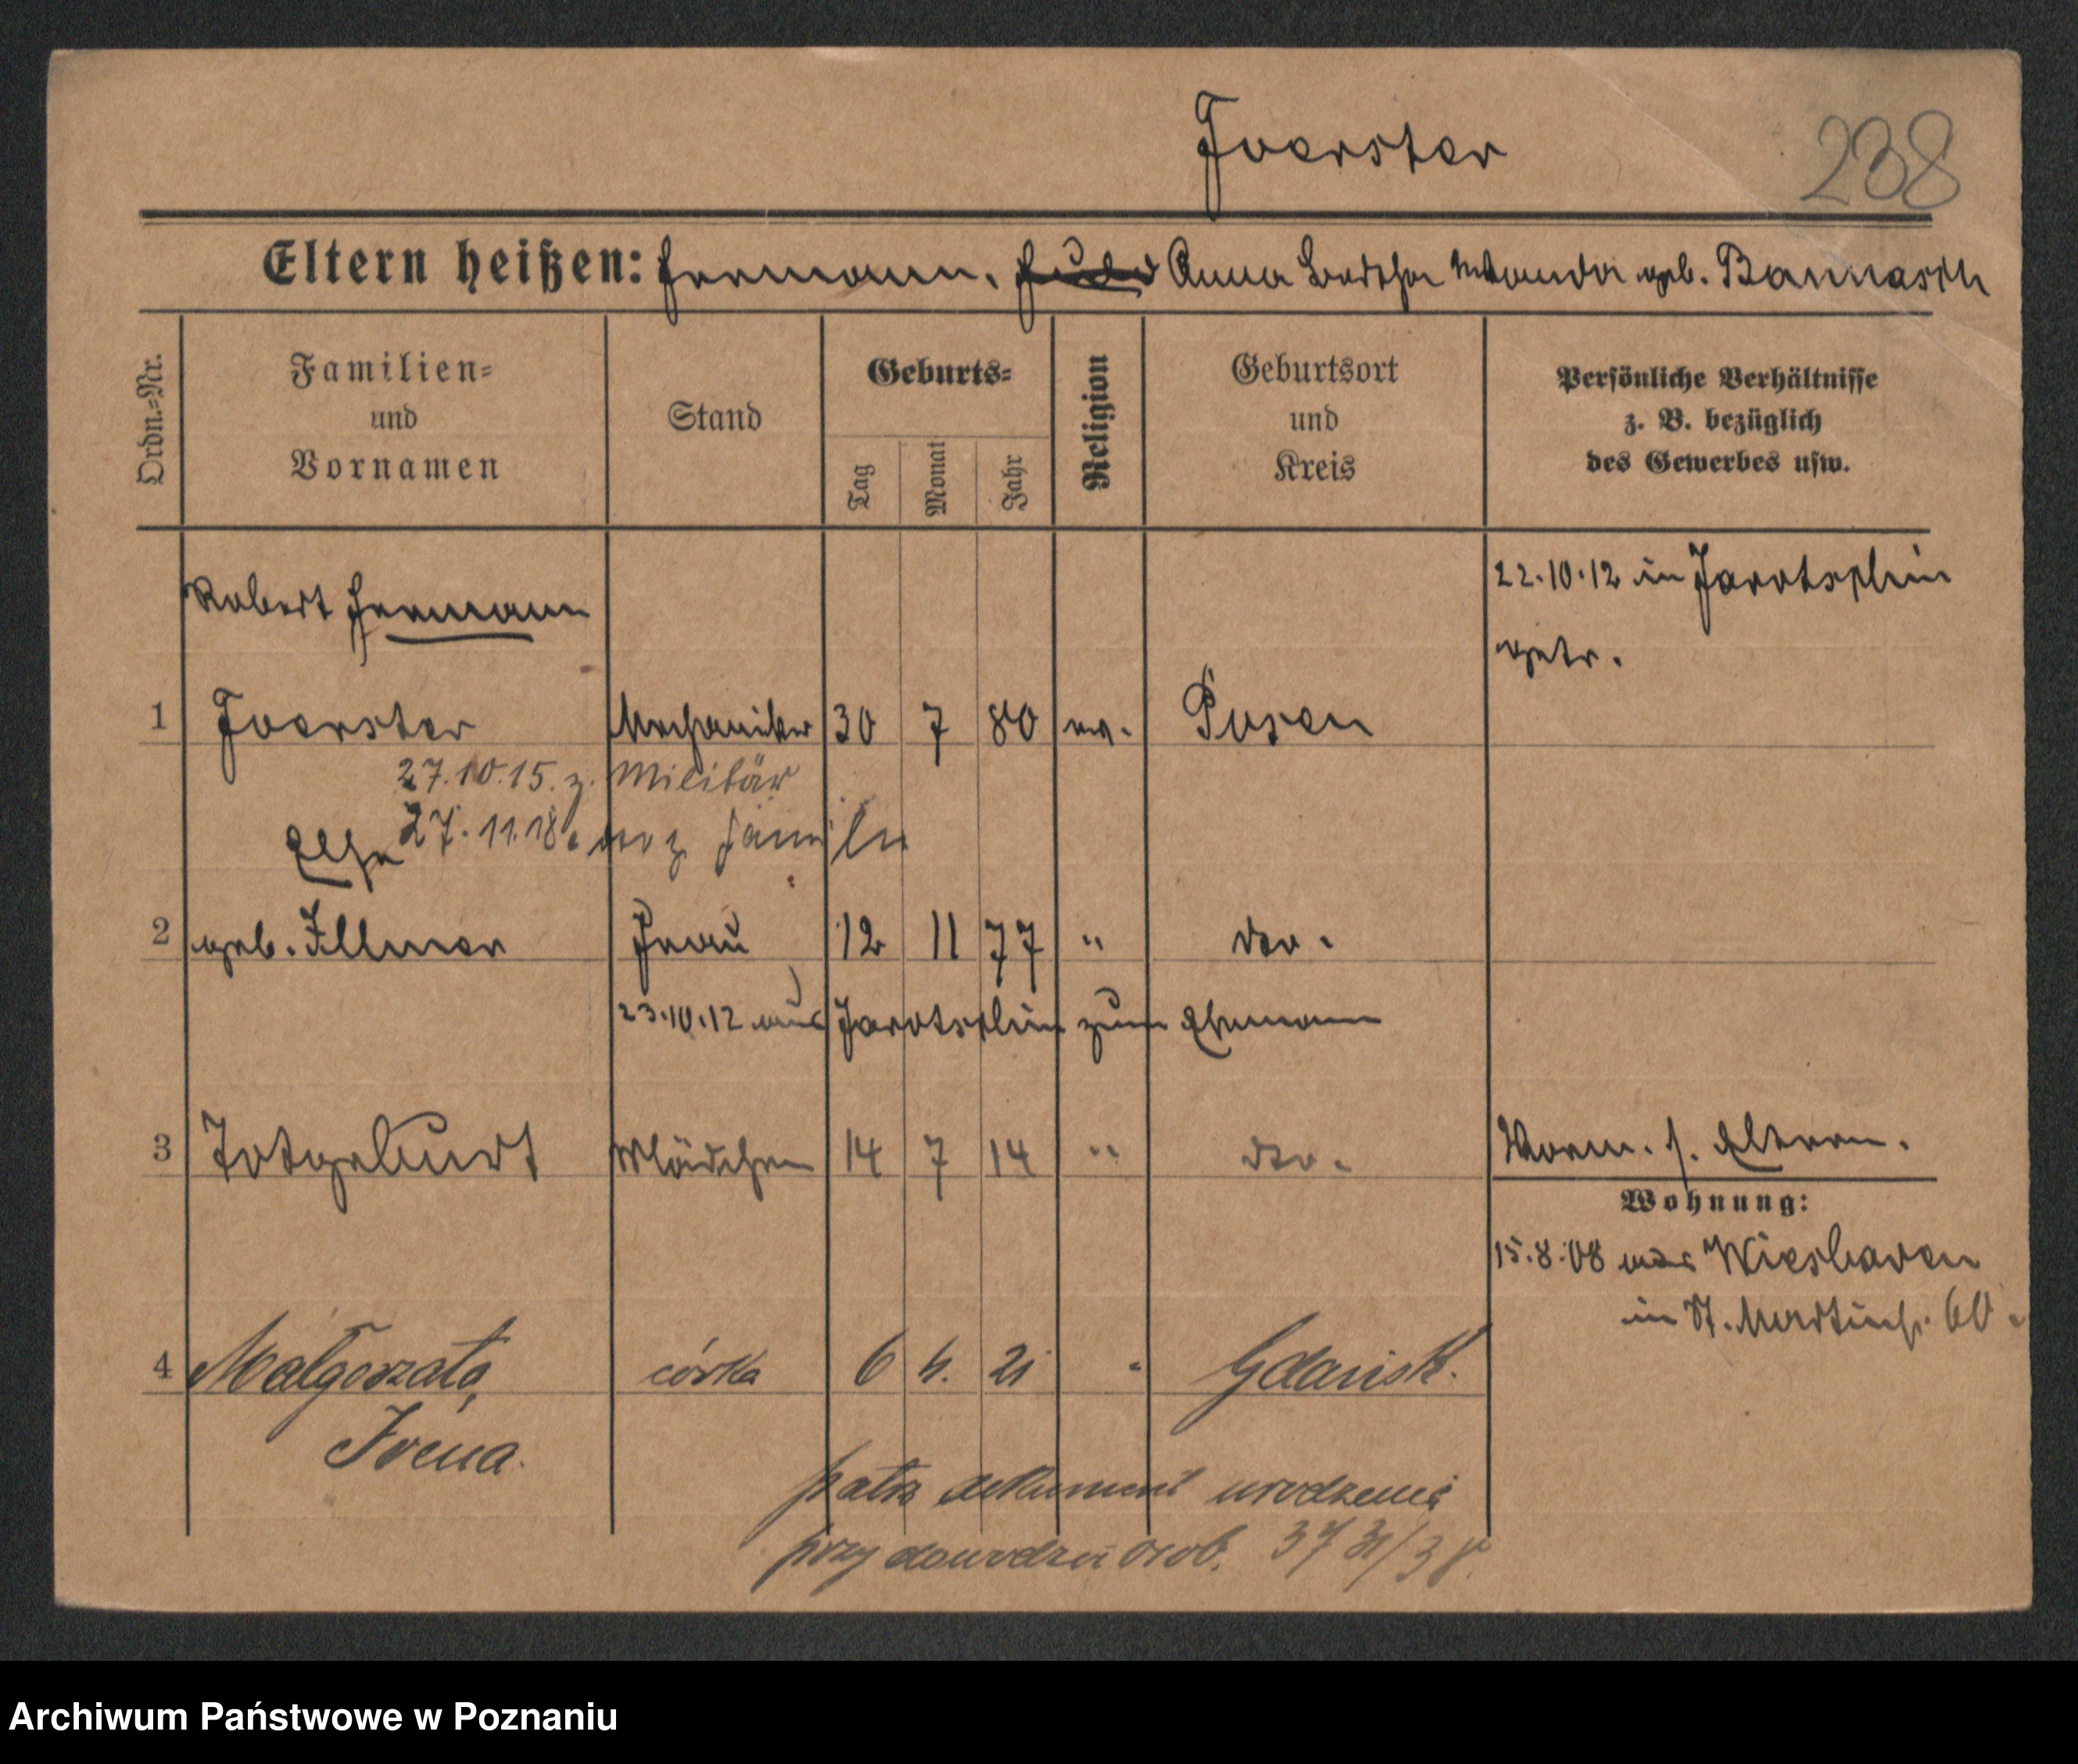 Foerster
238
Eltern heißen: Hermann. Anna Bertha Wanda geb. Bannasch
Ordn.=Nr.
Familien=
und
Vornamen
Stand
Geburts=
Tag
Monat
Jahr
Religion
Geburtsort
und
Kreis
Persönliche Verhältnisse
z. B. bezüglich
des Gewerbes usw.
Robert Hermann
22.10.12 in Jarotschin
getr.
1 Foerster Mechaniker 30 7 80 ev. Posen
27.10.15. z. Militär
27.11.18. z Familie
Else
2 geb. Illmer Frau 12 11 77 " dto.
23.10.12 aus Jarotschin zum Ehemann
3 Totgeburt Mädchen 14 7 14 " dto.
Vorm. s. Eltern.
Wohnung:
15.8.08 aus Wiesbaden
in St. Martinstr. 60.
4 Małgorzata, córka 6 4. 21 " Gdańsk.
Irena.
patrz dokument urodzenia
przy dowodzie osob. 3731/38.